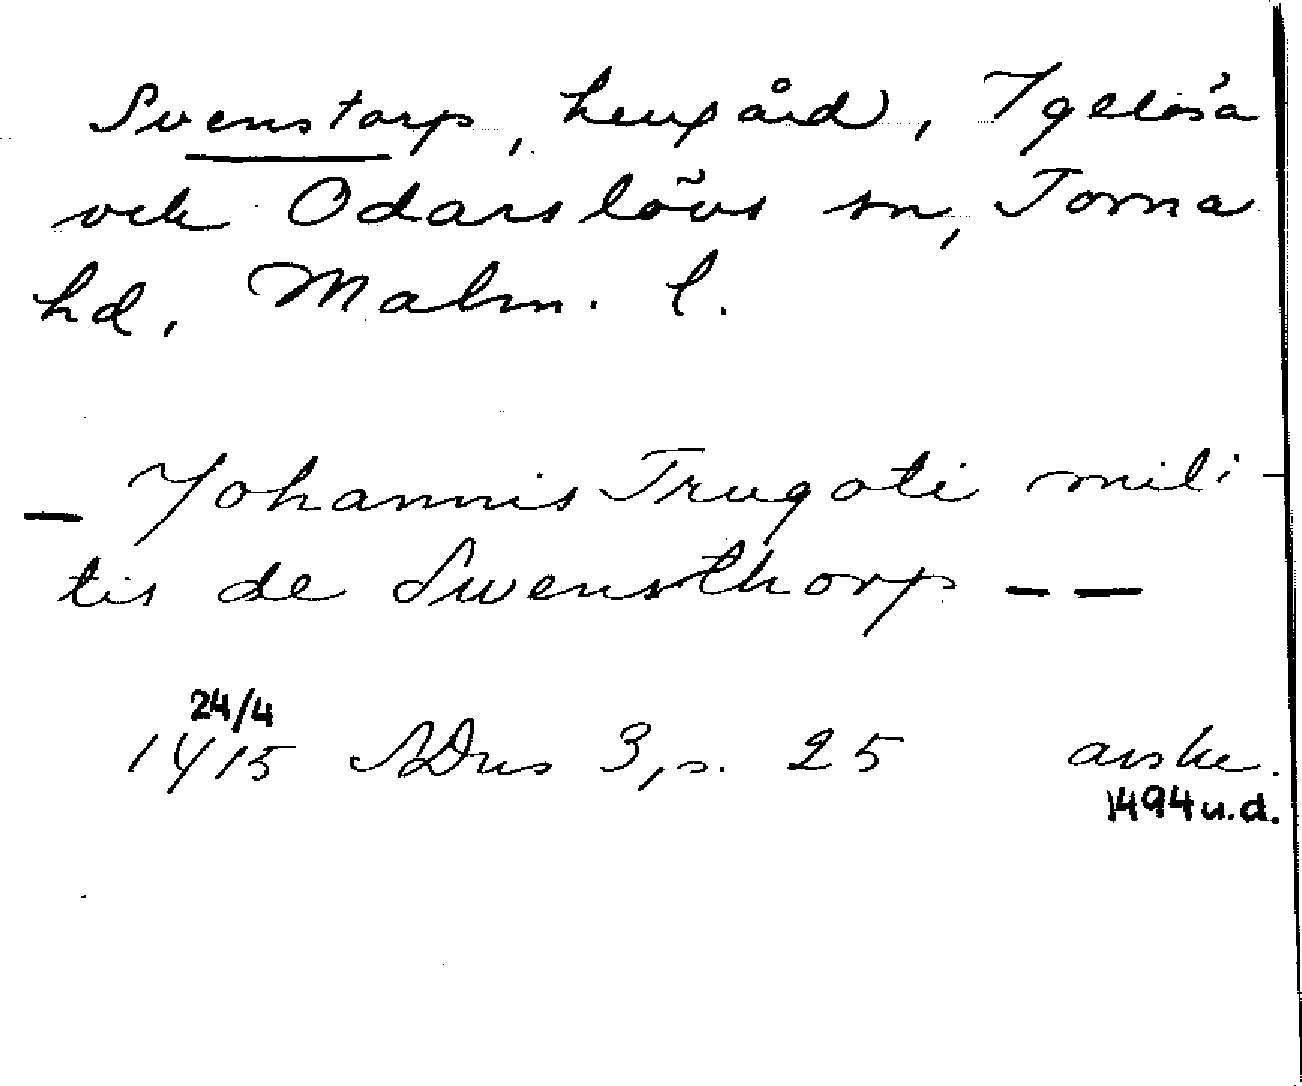 Svenstorp, herrgård, Igelösa
och Odarslövs sn, Torna
hd, Malm. l.
– Johannis Trugoti mili-
tis de Swensthorp – –
24/4
1415 SDns 3, s. 25 avskr.
1494 u.d.